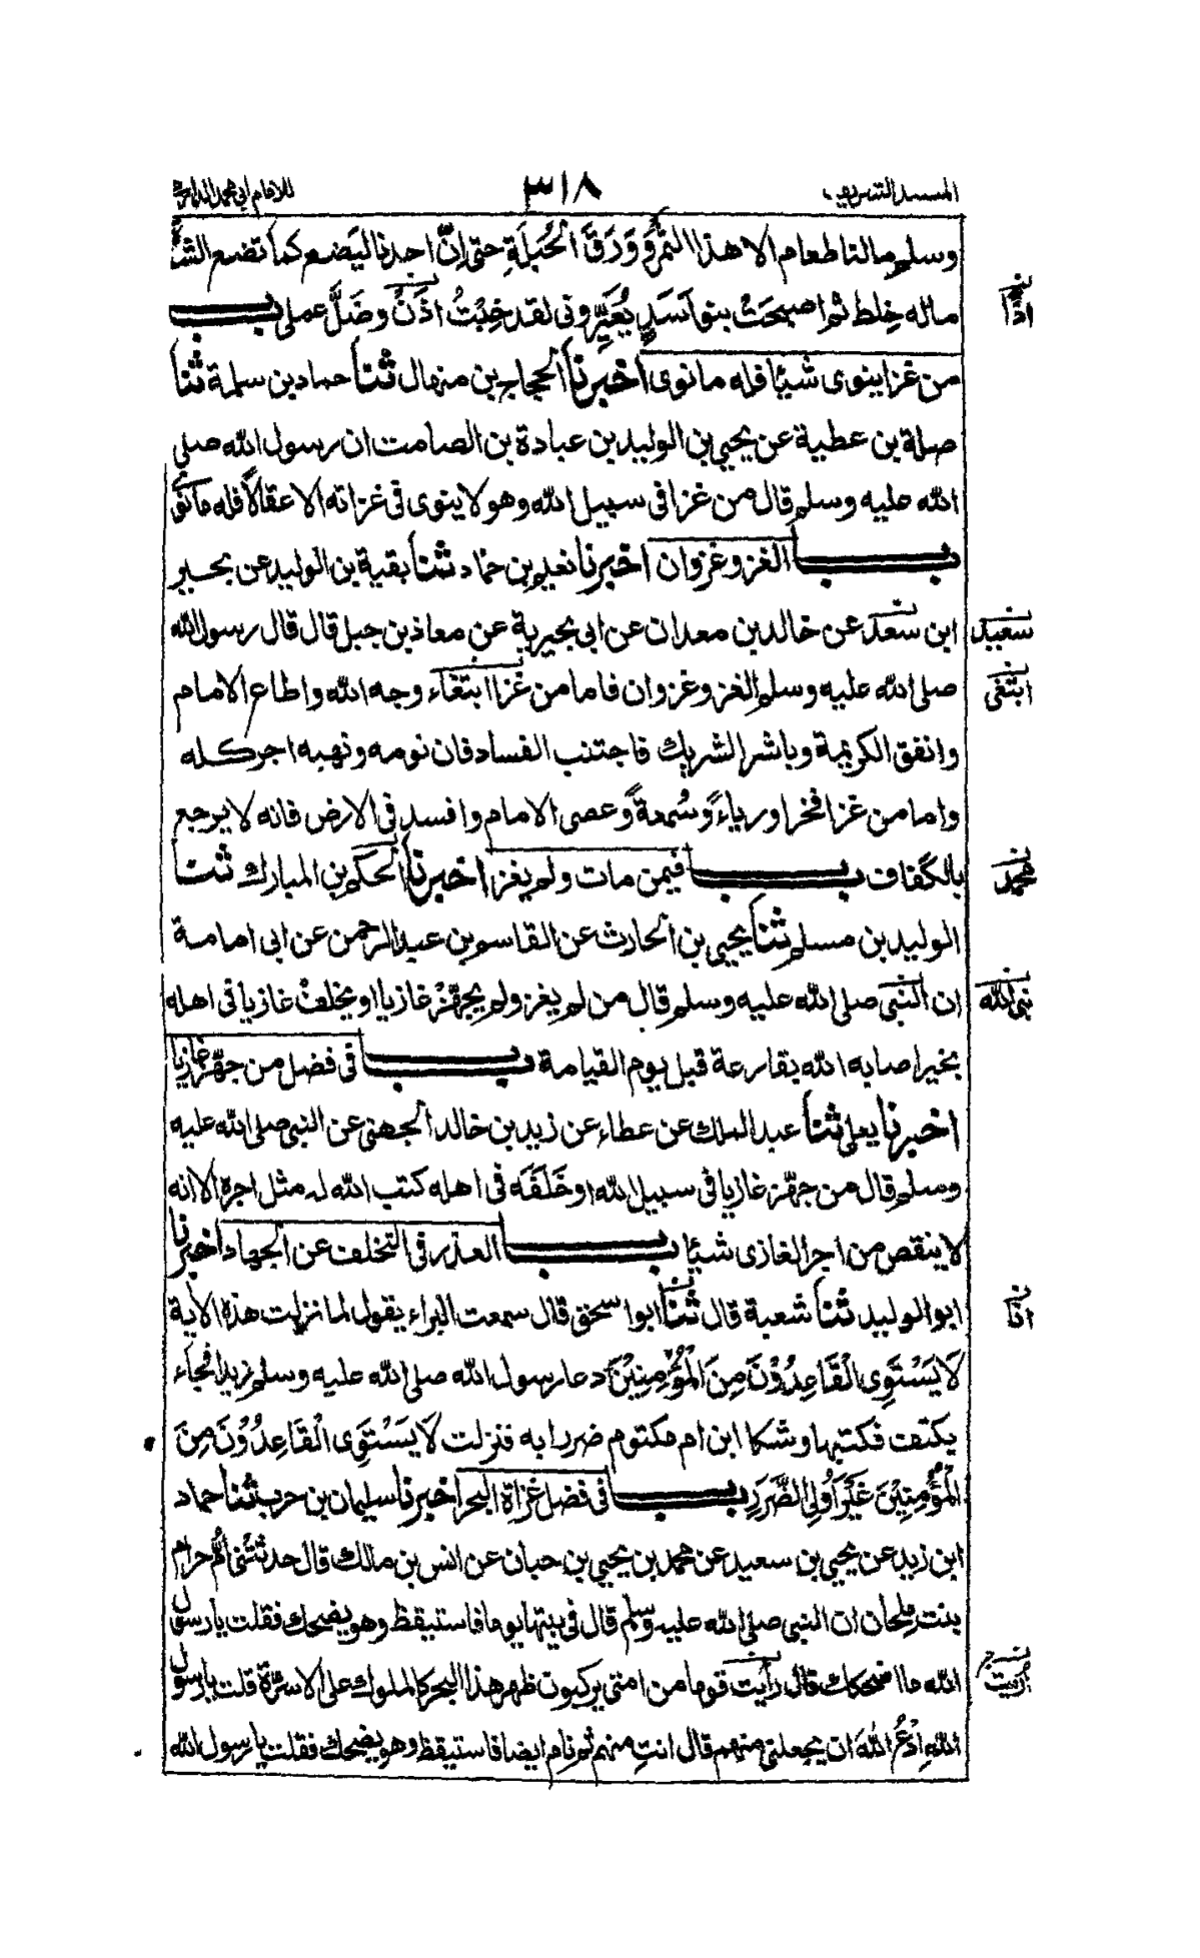 المسند الشريف ٣١٨ للامام ابي محمد الدارمي
وسلم مالنا طعام الا هذا التمر وَوَرَقَ الْحُبْلَةِ حتى اِنَّ احدنا ليَضع كما تضع الشاة
ماله خِلط ثم اصبحَتْ بنو اَسَدٍ يُعَيِّروني لقد خِبْتُ اذَنْ وضَلَّ عملى بـــاب
اذًا
من غزا ينوى شيئا فله مانوى اخبرنا الحجاج بن منهال ثنا حماد بن سلمة ثنا
جبلة بن عطية عن يحيى بن الوليد بن عبادة بن الصامت ان رسول الله صلى
الله عليه وسلم قال من غزا فى سبيل الله وهو لا ينوى فى غزاته الا عقالًا فله ما نوى
بـــاب الغزو غزوان اخبرنا نعيم بن حماد ثنا بقية بن الوليد عن بحير
ابن سعد عن خالد بن معدان عن ابى بحرية عن معاذ بن جبل قال قال رسول الله
سعيد
صلى الله عليه وسلم الغزو غزوان فاما من غزا ابتغاء وجه الله واطاع الامام
ابتغى
وانفق الكريمة وباشر الشريك فاجتنب الفساد فان نومه ونهبه اجر كله
واما من غزا فخرا ورياءً وسُمعةً وعصى الامام وافسد فى الارض فانه لا يرجع
بالكَفاف بـــاب فيمن مات ولم يغز اخبرنا الحكم بن المبارك ثنا
محمد
الوليد بن مسلم ثنا يحيى بن الحارث عن القاسم بن عبد الرحمن عن ابى امامة
ان النبى صلى الله عليه وسلم قال من لم يغز ولم يجهّزْ غازيا او يخلفْ غازيا فى اهله
نبى الله
بخير اصابه الله بقارعة قبل يوم القيامة بـــاب فى فضل من جهّز غازيا
اخبرنا يعلى ثنا عبد الملك عن عطاء عن زيد بن خالد الجهنى عن النبى صلى الله عليه
وسلم قال من جهّز غازيا فى سبيل الله او خَلَفَه فى اهله كتب الله له مثل اجره الا انه
لا ينقص من اجر الغازى شيئا بـــاب العذر فى التخلف عن الجهاد اخبرنا
ابو الوليد ثنا شعبة قال ثنا ابو اسحق قال سمعت البراء يقول لما نزلت هذه الآية
انا
لَا يَسْتَوِى الْقَاعِدُوْنَ مِنَ الْمُؤْمِنِيْنَ دعا رسول الله صلى الله عليه وسلم زيدا فجاء
بكتف فكتبها وشكا ابن ام مكتوم ضررا به فنزلت لَا يَسْتَوِى الْقَاعِدُوْنَ مِنَ
الْمُؤْمِنِيْنَ غَيْرُ اُولِى الضَّرَرِ بـــاب فى فضل غزاة البحر اخبرنا سليمان بن حرب ثنا حماد
ابن زيد عن يحيى بن سعيد عن محمد بن يحيى بن حبان عن انس بن مالك قال حدثتنى امُّ حرام
بنت مِلحان ان النبى صلى الله عليه وسلم قال فى بيتها يوما فاستيقظ وهو يضحك فقلت يا رسول
الله ما اضحكك قال رأيت قوما من امتى يركبون ظهر هذا البحر كالملوك على الاسرّة قلت يا رسول
أُريت
اللهِ ادْعُ اللهَ ان يجعلنى منهم قال انتِ منهم ثم نام ايضا فاستيقظ وهو يضحك فقلت يا رسول الله